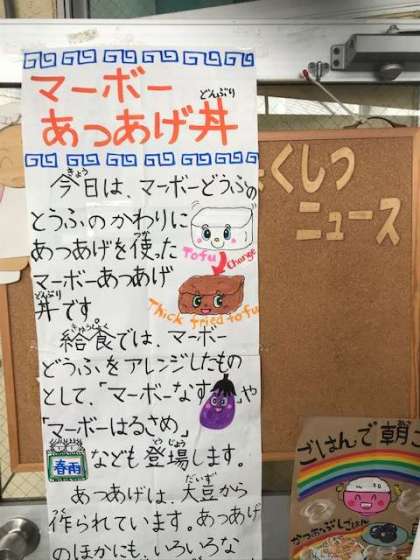 マーボー
あつあげ丼
どんぶり
今日は、マーボーどうふの
きょう
とうふのかわりに
あつあげを使った
つか
マーボーあつあげ
丼です。
どんぶり
Tofu
Change
Thick fried tofu
給食では、マーボー
きゅうしょく
どうふをアレンジしたもの
として、「マーボーなす」や
「マーボーはるさめ」
春雨
なども登場します。
とうじょう
あつあげは、大豆から
だいず
作られています。あつあげ
つく
のほかにも、いろいろな
くしつ
ニュース
ごはんで朝
かつおぶしごはん